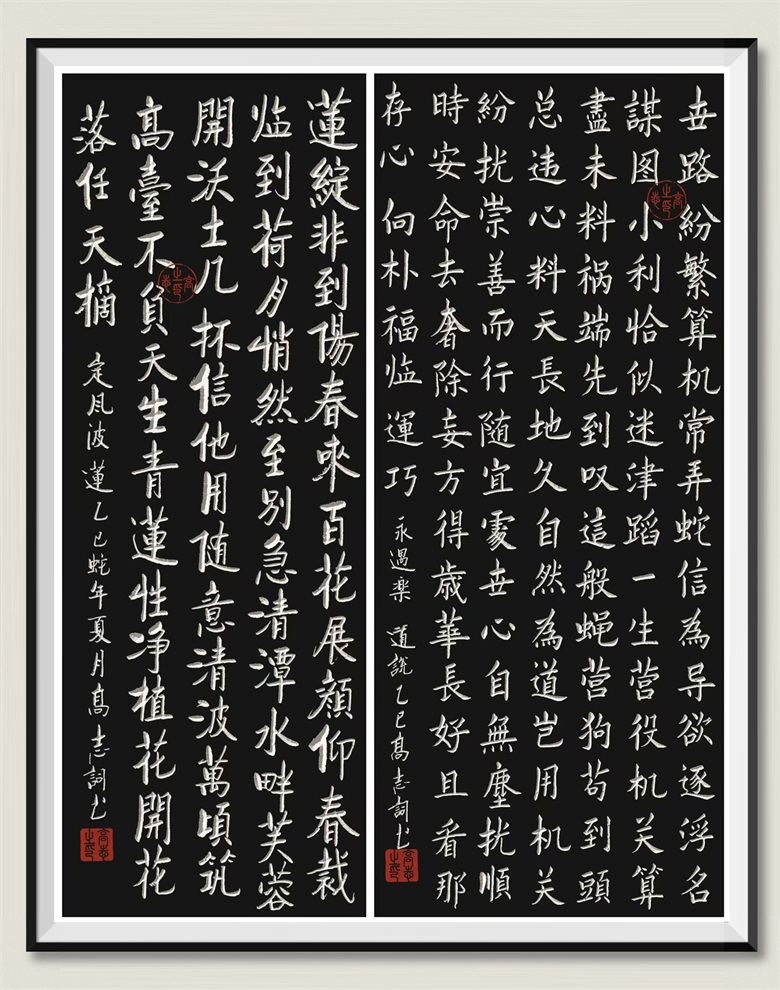 世路紛繁算机常弄蛇信為导欲逐浮名
謀图小利恰似迷津蹈一生营役机关算
盡未料祸端先到叹這般蝇营狗苟到頭
总违心料天長地久自然為道岂用机关
紛扰崇善而行随宜處世心自無塵扰順
時安命去奢除妄方得歳華長好且看那
存心向朴福临運巧 永遇楽 道說 乙巳高志詞书
高志之印
高志之印
蓮綻非到陽春來百花展顏仰春裁
临到荷月悄然至别急清潭水畔芙蓉
開沃土几抔信他用随意清波萬頃筑
高臺不負天生青蓮性净植花開花
落任天摘 定风波 蓮 乙巳蛇年夏月高志詞书
高志之印
高志之印